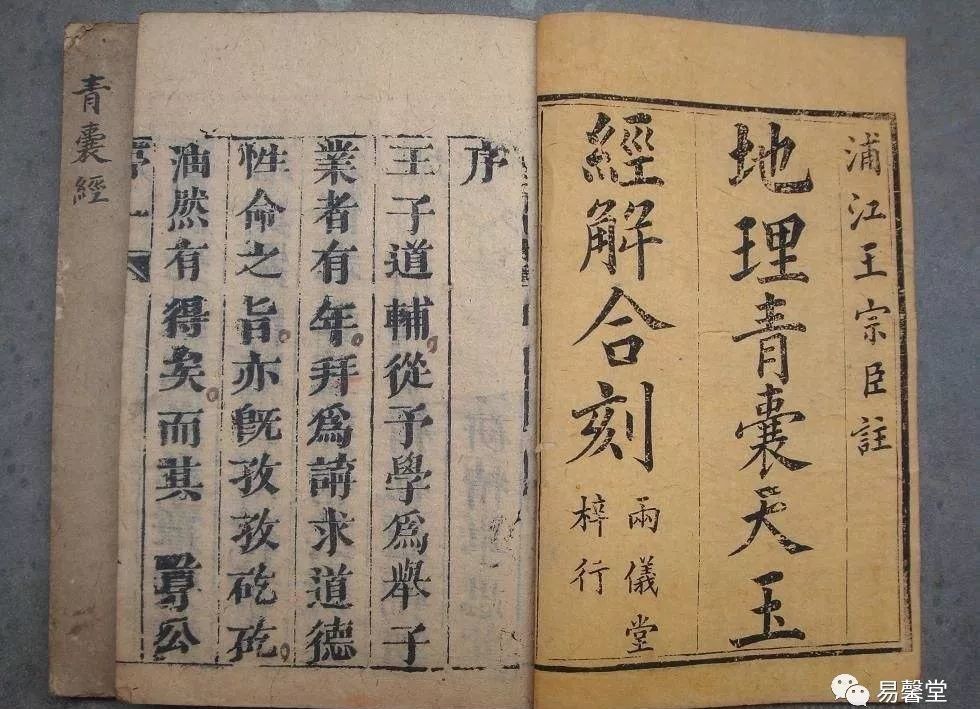 浦江王宗臣註
地理青囊天玉
經解合刻
兩儀堂
梓行
序
王子道輔從予學爲舉子
業者有年拜爲講求道德
性命之旨亦旣孜孜矻矻
油然有得矣而其 尊公
青囊經
易馨堂